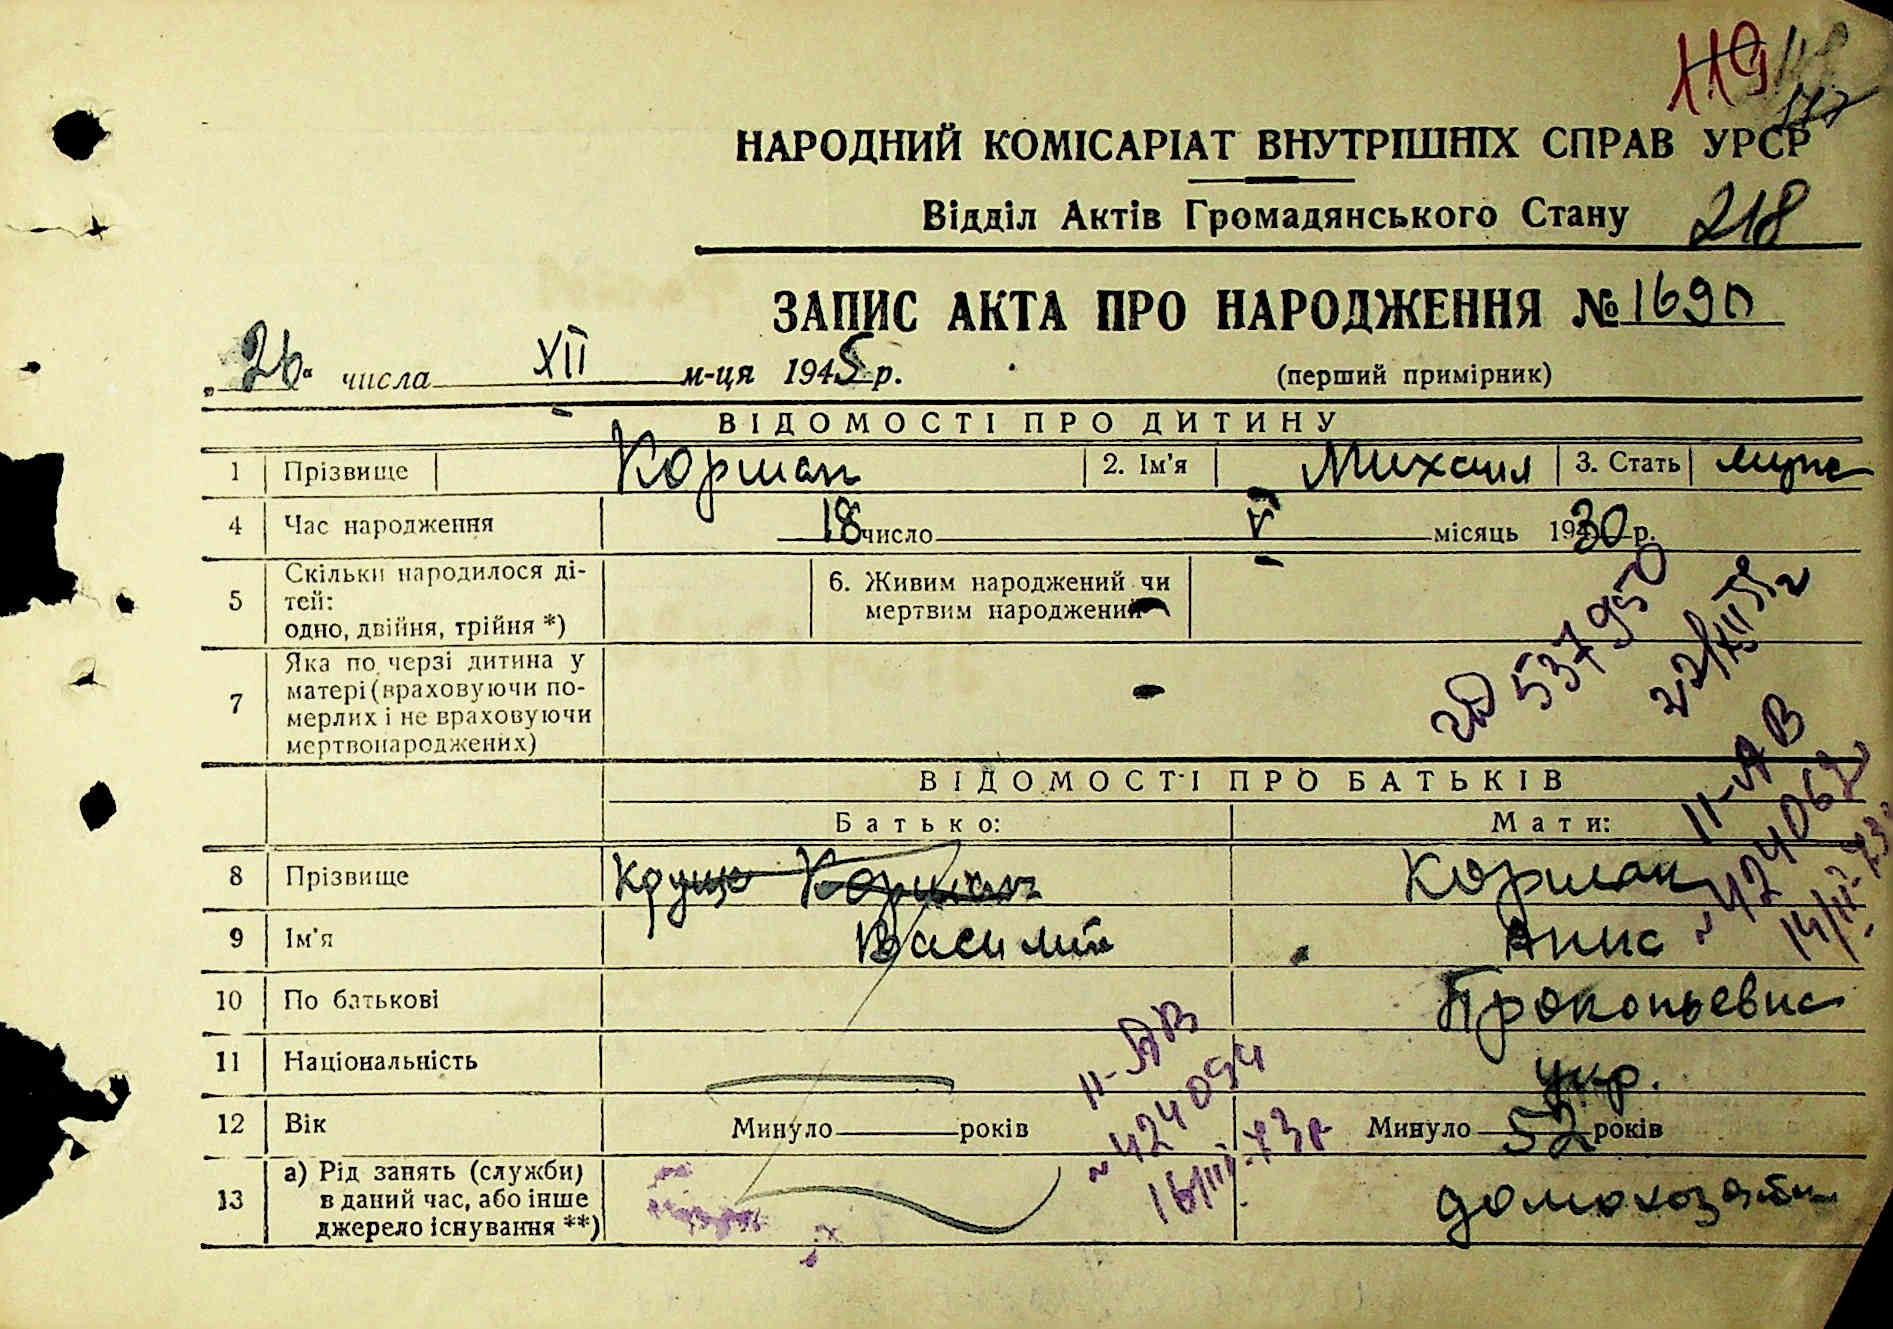 119 118
117
НАРОДНИЙ КОМІСАРІАТ ВНУТРІШНІХ СПРАВ УРСР
Відділ Актів Громадянського Стану 218
ЗАПИС АКТА ПРО НАРОДЖЕННЯ № 1690
„26“ числа XII м-ця 1945 р. (перший примірник)
ВІДОМОСТІ ПРО ДИТИНУ
1 Прізвище Корман 2. Ім'я Михаил 3. Стать муж
4 Час народження 18 число V місяць 1930 р.
5 Скільки народилося ді-
тей:
одно, двійня, трійня *)
6. Живим народжений чи
мертвим народжений
7 Яка по черзі дитина у
матері (враховуючи по-
мерлих і не враховуючи
мертвонароджених)
537950
22/XII
II-АВ
№ 424062
14/III-73
ВІДОМОСТІ ПРО БАТЬКІВ
Батько: Мати:
8 Прізвище Корман Корман
9 Ім'я Василий Анна
10 По батькові Прокопьевна
11 Національність укр.
12 Вік Минуло років Минуло 52 років
II-АВ
№ 424094
16/III-73 г
13 а) Рід занять (служби)
в даний час, або інше
джерело існування **)
домохозяйка